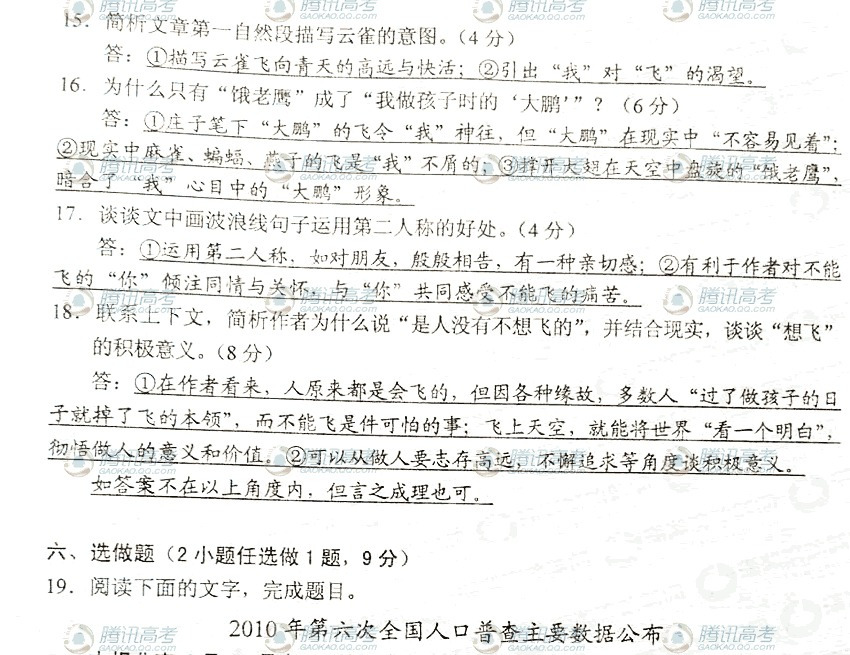 15. 简析文章第一自然段描写云雀的意图。(4分)
答：①描写云雀飞向青天的高远与快活；②引出“我”对“飞”的渴望。
16. 为什么只有“饿老鹰”成了“我做孩子时的‘大鹏’”？(6分)
答：①庄子笔下“大鹏”的飞令“我”神往，但“大鹏”在现实中“不容易见着”；
②现实中麻雀、蝙蝠、燕子的飞是“我”不屑的；③撑开大翅在天空中盘旋的“饿老鹰”，
暗合了“我”心目中的“大鹏”形象。
17. 谈谈文中画波浪线句子运用第二人称的好处。(4分)
答：①运用第二人称，如对朋友，殷殷相告，有一种亲切感；②有利于作者对不能
飞的“你”倾注同情与关怀，与“你”共同感受不能飞的痛苦。
18. 联系上下文，简析作者为什么说“是人没有不想飞的”，并结合现实，谈谈“想飞”
的积极意义。(8分)
答：①在作者看来，人原来都是会飞的，但因各种缘故，多数人“过了做孩子的日
子就掉了飞的本领”，而不能飞是件可怕的事；飞上天空，就能将世界“看一个明白”，
彻悟做人的意义和价值。②可以从做人要志存高远，不懈追求等角度谈积极意义。
如答案不在以上角度内，但言之成理也可。
六、选做题（2小题任选做1题，9分）
19. 阅读下面的文字，完成题目。
2010年第六次全国人口普查主要数据公布
腾讯高考
GAOKAO.QQ.COM